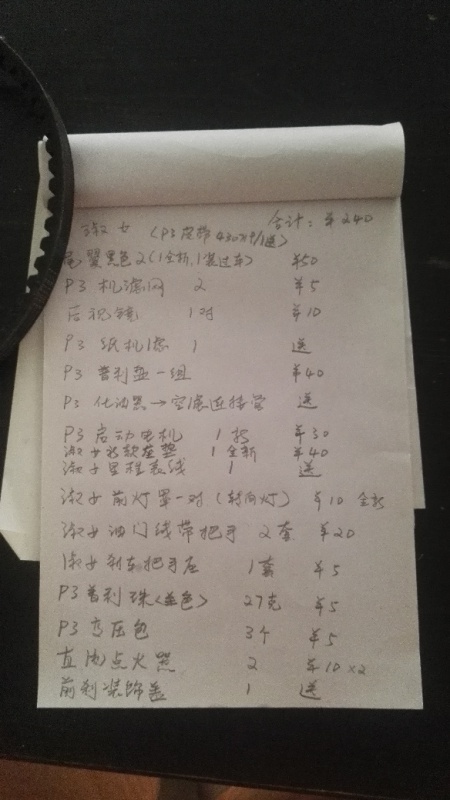 淑女 (P3皮带430 1送) 合计：￥240
尾翼黑色2(1全新,1装过车) ￥50
P3 机滤网 2 ￥5
后视镜 1对 ￥10
P3 纸机滤 1 送
P3 普利盘一组 ￥40
P3 化油器→空滤连接管 送
P3 启动电机 1 ￥30
淑女 坐垫 1全新 ￥40
淑女里程表线 1 送
淑女前灯罩一对(转向灯) ￥10 全新
淑女油门线带把手 2套 ￥20
淑女刹车把手座 1套 ￥5
P3 普利珠(蓝色) 27克 ￥5
P3 高压包 3个 ￥5
直流点火器 2 ￥10×2
前刹装饰盖 1 送